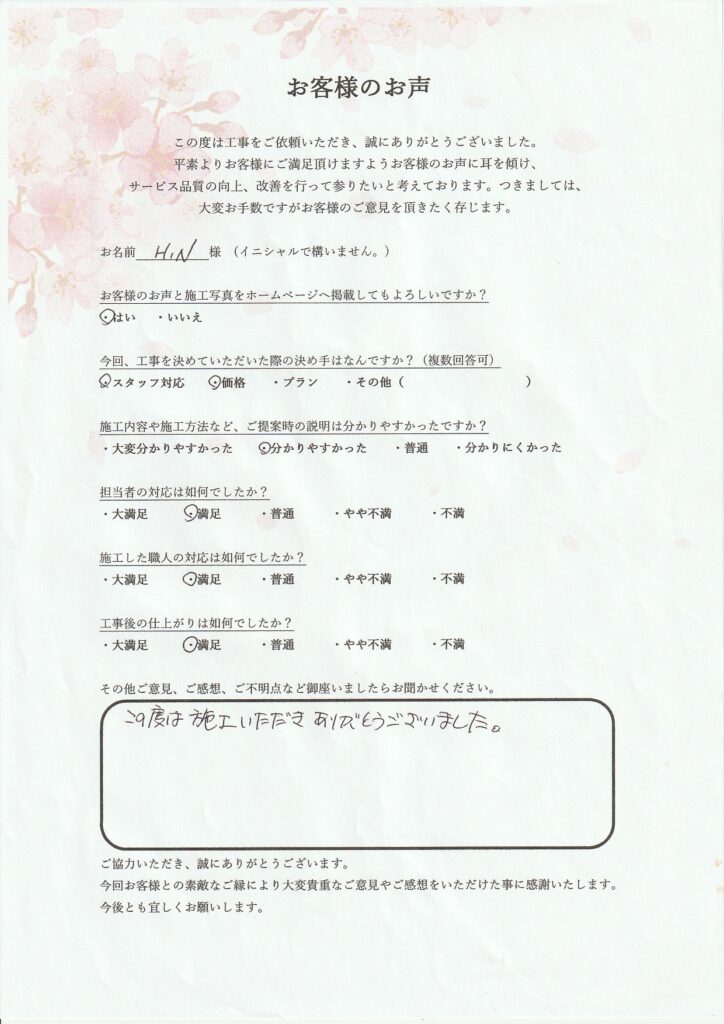 お客様のお声
この度は工事をご依頼いただき、誠にありがとうございました。
平素よりお客様にご満足頂けますようお客様のお声に耳を傾け、
サービス品質の向上、改善を行って参りたいと考えております。つきましては、
大変お手数ですがお客様のご意見を頂きたく存じます。
お名前 H.N 様 （イニシャルで構いません。）
お客様のお声と施工写真をホームページへ掲載してもよろしいですか？
・はい ・いいえ
今回、工事を決めていただいた際の決め手はなんですか？（複数回答可）
・スタッフ対応 ・価格 ・プラン ・その他（ ）
施工内容や施工方法など、ご提案時の説明は分かりやすかったですか？
・大変分かりやすかった ・分かりやすかった ・普通 ・分かりにくかった
担当者の対応は如何でしたか？
・大満足 ・満足 ・普通 ・やや不満 ・不満
施工した職人の対応は如何でしたか？
・大満足 ・満足 ・普通 ・やや不満 ・不満
工事後の仕上がりは如何でしたか？
・大満足 ・満足 ・普通 ・やや不満 ・不満
その他ご意見、ご感想、ご不明点など御座いましたらお聞かせください。
この度は施工いただきありがとうございました。
ご協力いただき、誠にありがとうございます。
今回お客様との素敵なご縁により大変貴重なご意見やご感想をいただけた事に感謝いたします。
今後とも宜しくお願いします。